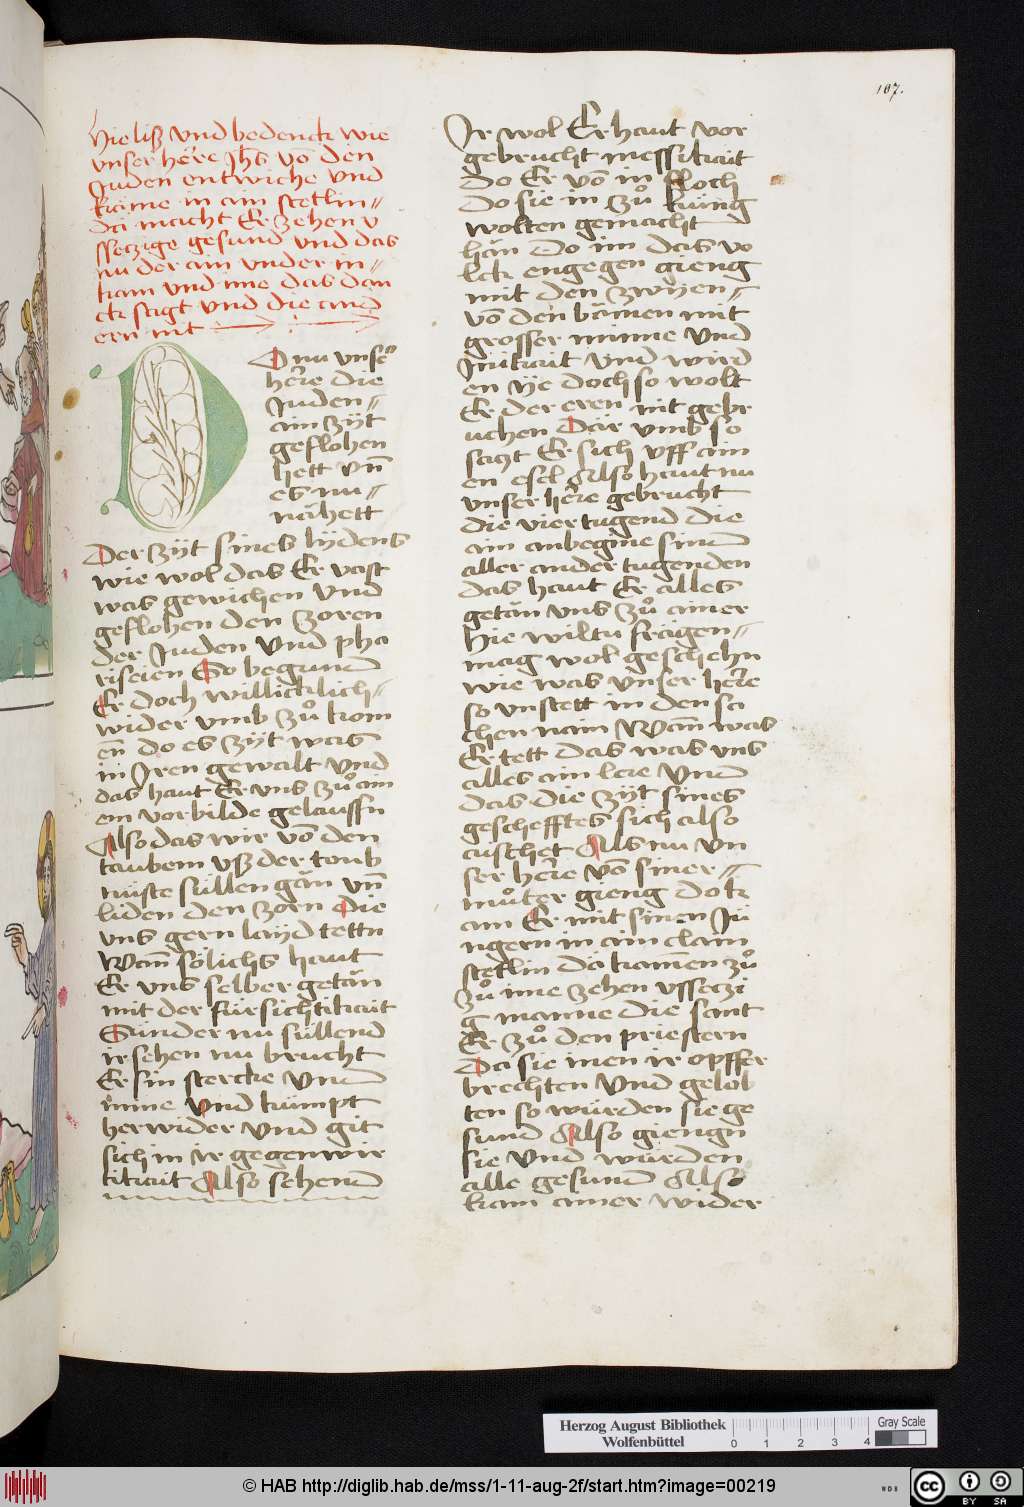 107.
Hie liß vnd bedenck wie
vnser hēre Jhs vō den
Juden entwiche vnd
käme in ain stetlin〃
da macht Er zehen v
sseczige gesund vnd das
nu der ain vnder in〃
kam vnd ime das dan
ck sagt vnd die and
ern nit
DO nu vnser
hēre die
Juden〃
ain zÿt
geflohen
hett vn̄
es nu〃
nähett
Der zÿt sines lÿdens
wie wol das Er vast
was gewichen vnd
geflohen den zoren
der Juden vnd pha
riseien So begund
Er doch willicklich〃
wider vmb zů kom
en̄ do es zÿt was
in Jren gewalt vnd
das haut Er vns zů ain
em vorbilde gelaussn
Also das wir vō den
taubem vß der toub
nüste süllen gän vn̄
liden den zorn Die
vns gern layd tettn
Wam̄ sölichs haut
Er vns selber getän
mit der fürsichtikait
Sünder nu süllend
ir sehen nu brucht
Er sin stercke vnd
mine vnd kümpt
herwider vnd git
sich in ir gegenwir
tikait Also sehend
Jr wol Er haut vor
gebrucht messikait
do Er vō in floch
do sie in zů küng
wolten gemacht
hän do im das vo
lck engegen gieng
mit den zwÿen〃
vō den bämen mit
grosser minne vnd
Jnikait vnd wird
en ÿe doch so wolt
Er der eren nit gebr
uchen Dar vmb so
saczt Er sich vff ain
en esel Also haut nu
vnser hēre gebrucht
die vier tugend die
ain anbegine sind
aller ander tugenden
das haut Er alles
getän vns zů ainer
Hie wiltu frägen〃
mag wol geschehn
wie was vnser hēre
so vnstett in den sa
chen nain Wam̄ was
Er tett das was vns
alles ain lere vnd
das die zÿt sines
gescheffttes sich also
auschet Als nu vn
ser hēre vō siner〃
můter gieng do k
am Er mit sinen Jü
ngern in ain clain
stetlin da kamen zů
zů ime zehen vsseczi
g manne die sant
Er zů den priestern
Da sie inen ir opffer
brechten vnd gelob
ten so würden sie ge
sund Also giengn
sie vnd würden
alle gesund Also
kam ainer wider
Herzog August Bibliothek
Wolfenbüttel
0 1 2 3 4
Gray Scale
© HAB http://diglib.hab.de/mss/1-11-aug-2f/start.htm?image=00219
WDB
CC BY SA